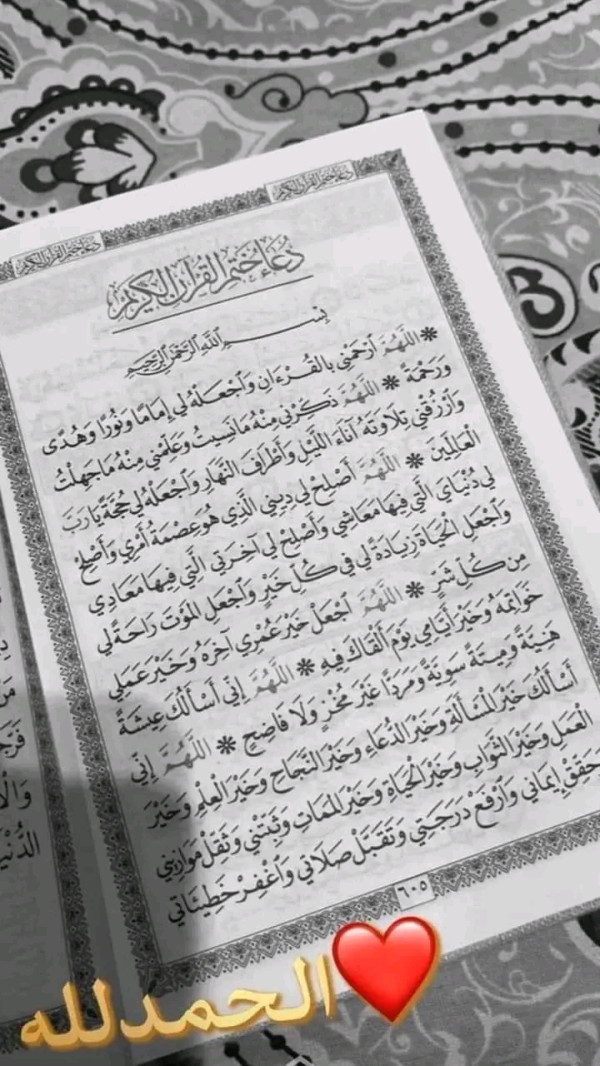 دعاء ختم القرآن الكريم
دعاء ختم القرآن الكريم
دُعَاءُ خَتْمِ القُرْآنِ الكَرِيمِ
بِسْمِ اللَّهِ الرَّحْمَنِ الرَّحِيمِ
* اللَّهُمَّ ارْحَمْنِي بِالقُرْءَانِ وَاجْعَلْهُ لِي إِمَامًا وَنُورًا وَهُدًى
وَرَحْمَةً * اللَّهُمَّ ذَكِّرْنِي مِنْهُ مَا نَسِيتُ وَعَلِّمْنِي مِنْهُ مَا جَهِلْتُ
وَارْزُقْنِي تِلَاوَتَهُ آنَاءَ اللَّيْلِ وَأَطْرَافَ النَّهَارِ وَاجْعَلْهُ لِي حُجَّةً يَا رَبَّ
العَالَمِينَ * اللَّهُمَّ أَصْلِحْ لِي دِينِي الَّذِي هُوَ عِصْمَةُ أَمْرِي وَأَصْلِحْ
لِي دُنْيَايَ الَّتِي فِيهَا مَعَاشِي وَأَصْلِحْ لِي آخِرَتِي الَّتِي فِيهَا مَعَادِي
وَاجْعَلِ الحَيَاةَ زِيَادَةً لِي فِي كُلِّ خَيْرٍ وَاجْعَلِ المَوْتَ رَاحَةً لِي
مِن كُلِّ شَرٍّ * اللَّهُمَّ اجْعَلْ خَيْرَ عُمْرِي آخِرَهُ وَخَيْرَ عَمَلِي
خَوَاتِمَهُ وَخَيْرَ أَيَّامِي يَوْمَ أَلْقَاكَ فِيهِ * اللَّهُمَّ إِنِّي أَسْأَلُكَ عِيشَةً
هَنِيَّةً وَمِيتَةً سَوِيَّةً وَمَرَدًّا غَيْرَ مُخْزٍ وَلَا فَاضِحٍ * اللَّهُمَّ إِنِّي
أَسْأَلُكَ خَيْرَ المَسْأَلَةِ وَخَيْرَ الدُّعَاءِ وَخَيْرَ النَّجَاحِ وَخَيْرَ العِلْمِ وَخَيْرَ
العَمَلِ وَخَيْرَ الثَّوَابِ وَخَيْرَ الحَيَاةِ وَخَيْرَ المَمَاتِ وَثَبِّتْنِي وَثَقِّلْ مَوَازِينِي
وَحَقِّقْ إِيمَانِي وَارْفَعْ دَرَجَتِي وَتَقَبَّلْ صَلَاتِي وَاغْفِرْ خَطِيئَاتِي
٦٠٥
الدُّنْيَا
الحمدلله